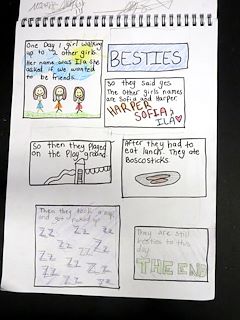 BESTIES
One Day 1 girl walking
up to 2 other girls
Her name was Ila she
asked if we wanted
to be friends
So they said yes
The other girls names
are Sofia and Harper.
HARPER
SOFIA,
ILA
So then they played
on the Playground.
After they had to
eat lunch. They ate
Boscosticks
Then they took a nap
and got picked up
ZZ ZZ ZZ
ZZ ZZ ZZ
ZZ ZZ ZZ
ZZ ZZ ZZ
They are still
besties to this
day
THE END